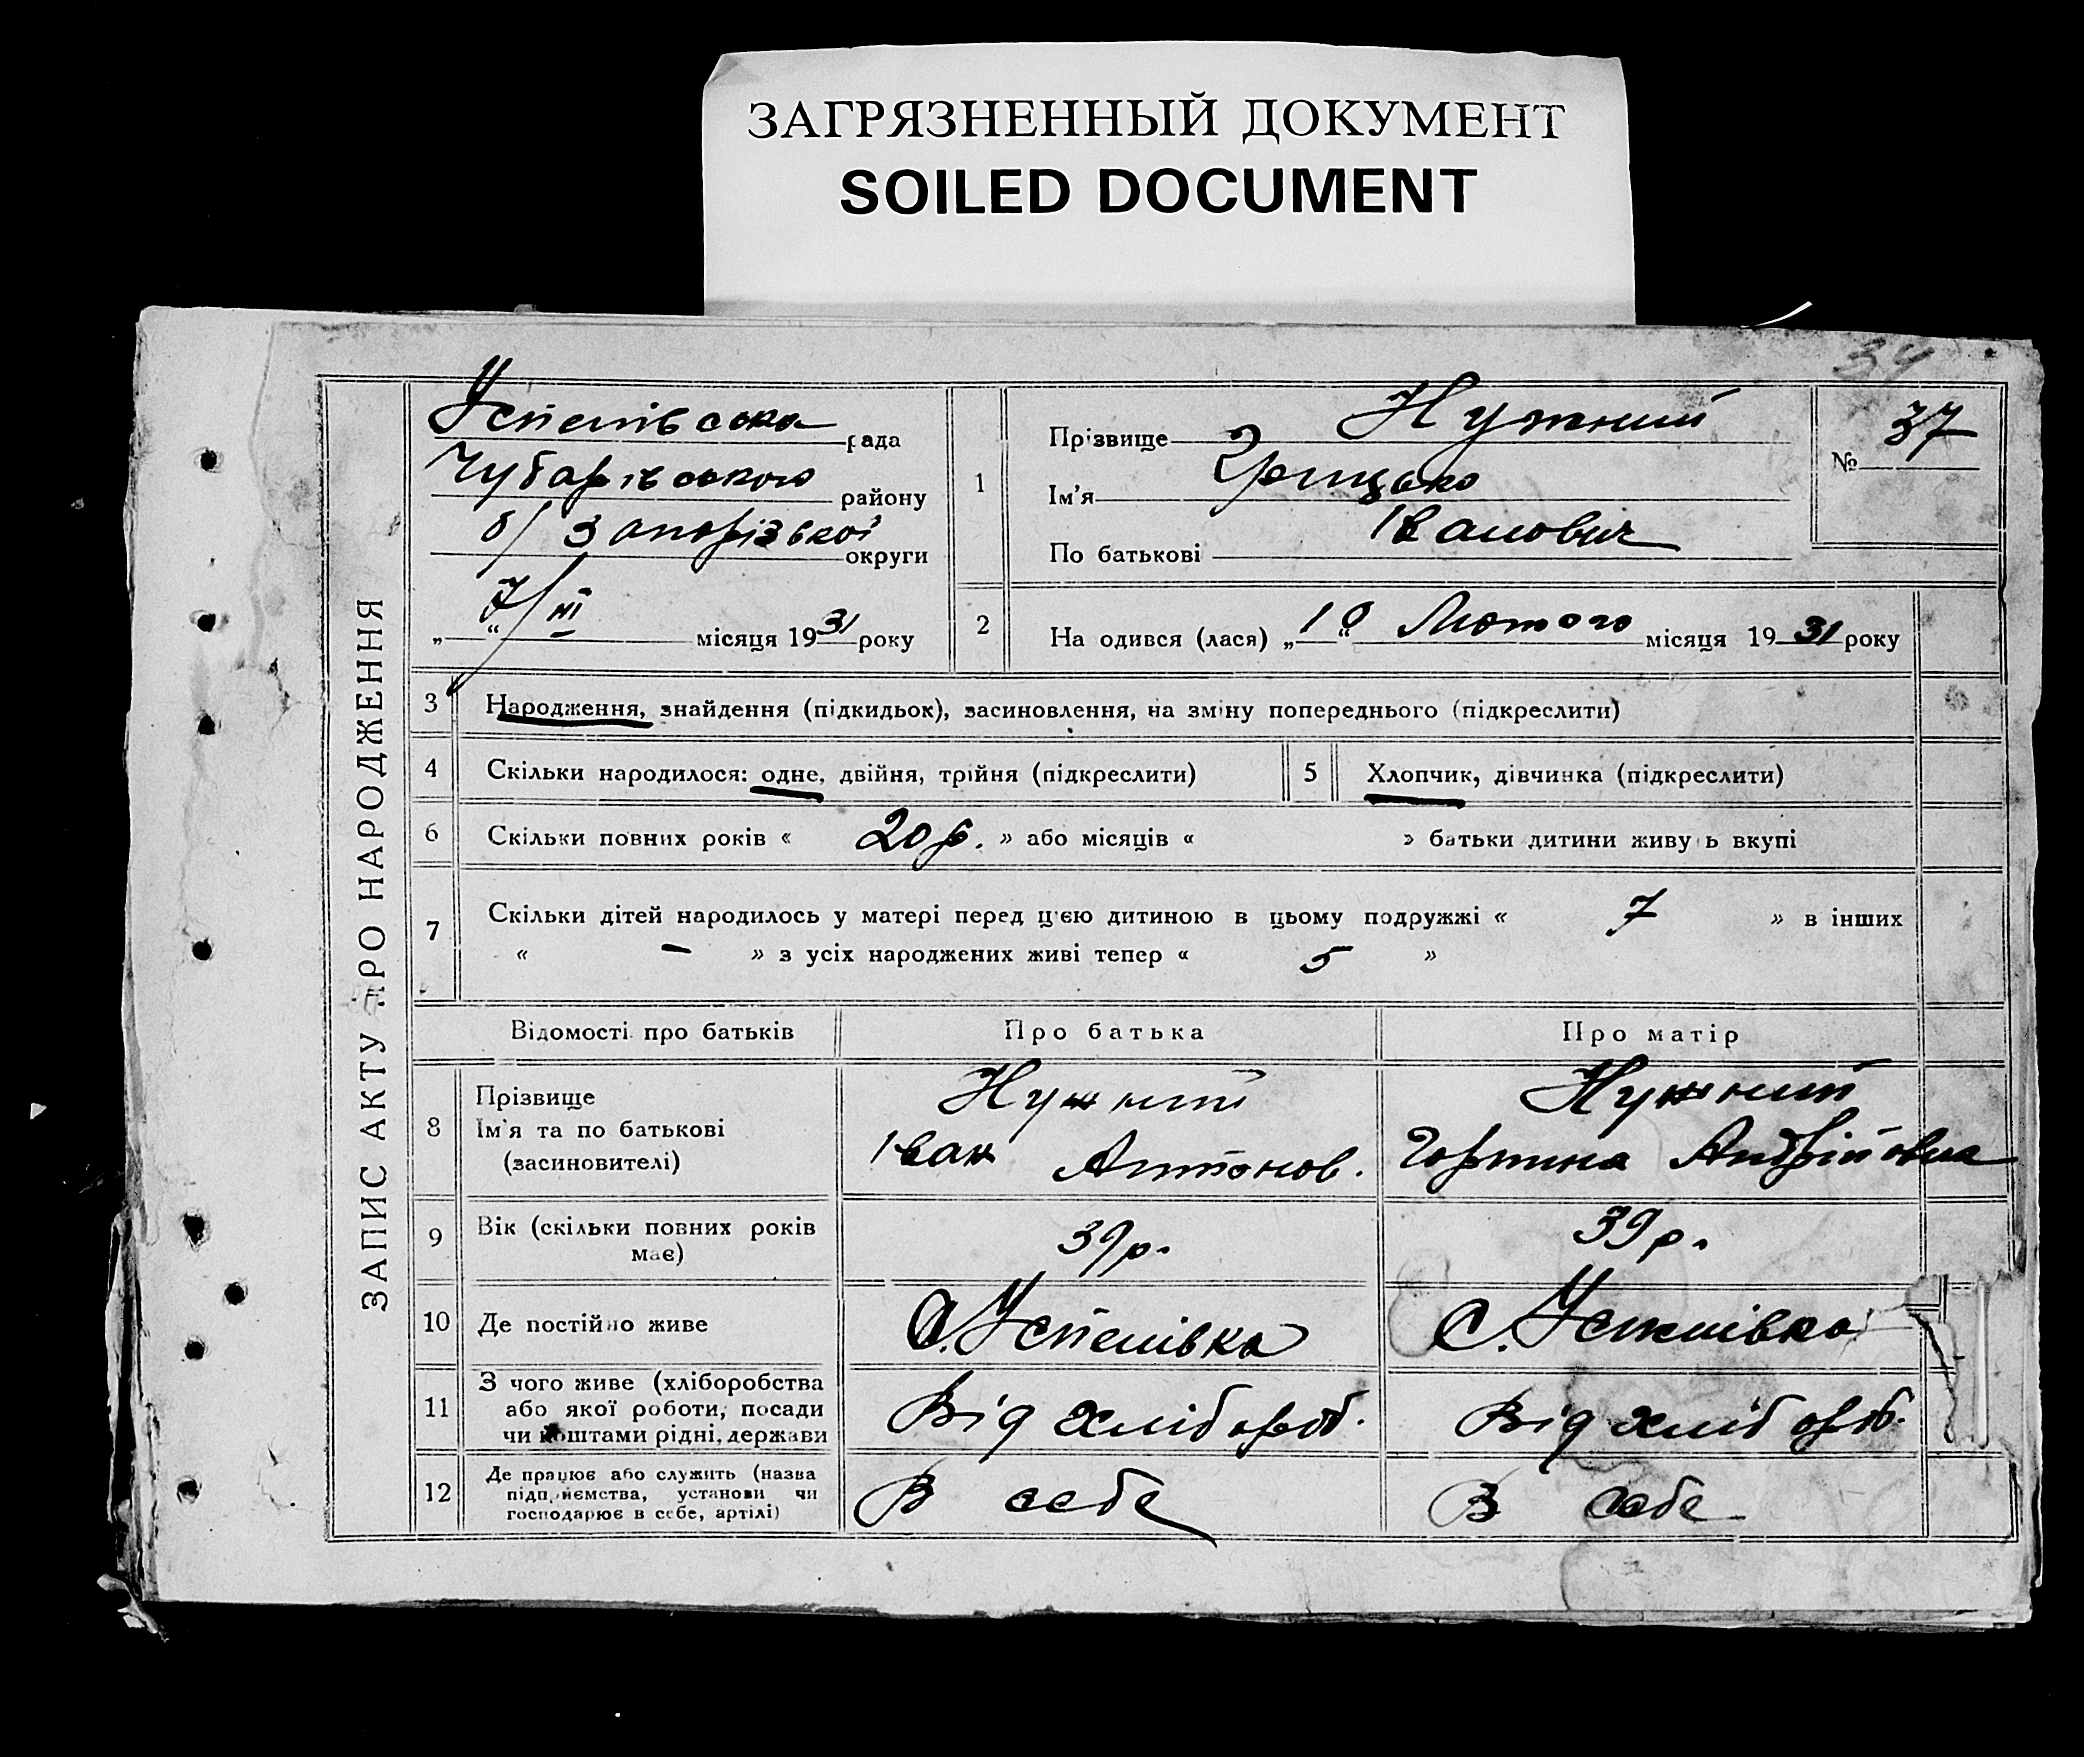 ЗАГРЯЗНЕННЫЙ ДОКУМЕНТ
SOILED DOCUMENT
34
ЗАПИС АКТУ ПРО НАРОДЖЕННЯ
Успенівська рада
Чубарівського району
б/Запорізької округи
„ 7/III “ місяця 1931 року
1
Прізвище Нужний
Ім'я Грицько
По батькові Іванович
№ 37
2 На одився (лася) „10“ Лютого місяця 1931 року
3 Народження, знайдення (підкидьок), засиновлення, на зміну попереднього (підкреслити)
4 Скільки народилося: одне, двійня, трійня (підкреслити) 5 Хлопчик, дівчинка (підкреслити)
6 Скільки повних років « 20 р. » або місяців « » батьки дитини живу ь вкупі
7 Скільки дітей народилось у матері перед ц'єю дитиною в цьому подружжі « 7 » в інших
« – » з усіх народжених живі тепер « 5 »
Відомості про батьків Про батька Про матір
8 Прізвище Нужний Нужний
Їм'я та по батькові Іван Антонов. Горпина Андрійовна
(засиновителі)
9 Вік (скільки повних років 39р. 39р.
має)
10 Де постійно живе С. Успенівка С. Успенівка
11 З чого живе (хліборобства Від хлібороб. Від хлібороб.
або якої роботи, посади
чи коштами рідні, держави
12 Де працює або служить (назва В себе В себе
підприємства, установи чи
господарює в себе, артілі)